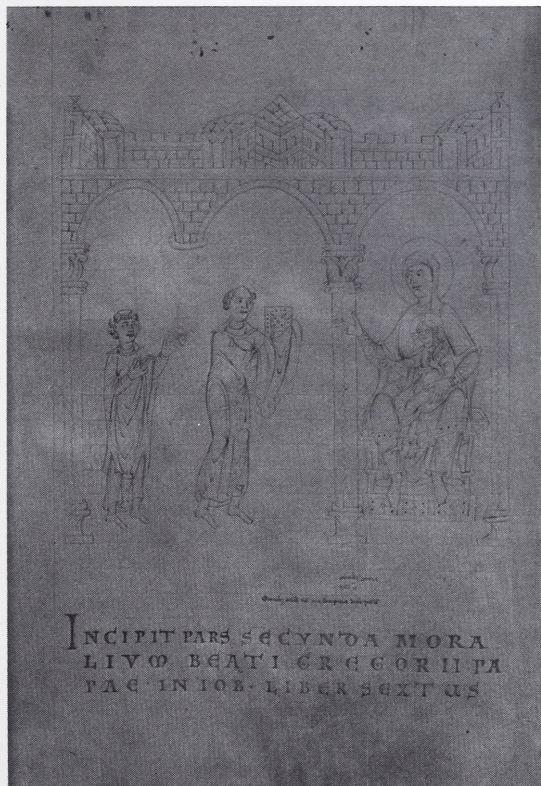 INCIPIT PARS SECVNDA MORA
LIVM BEATI GREGORII PA
PAE · IN IOB · LIBER SEXTUS